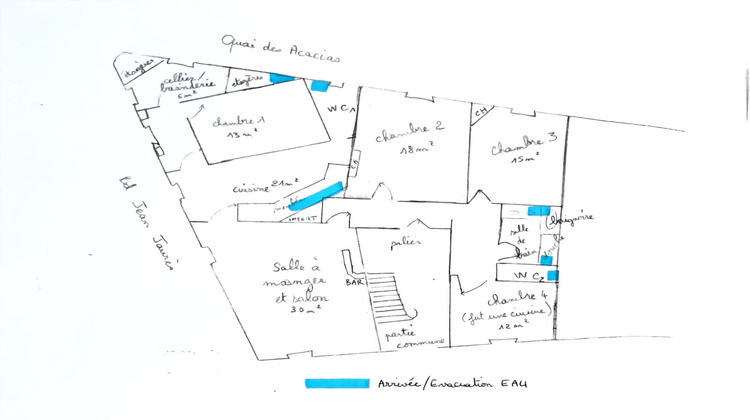 Quai des Acacias
étagères
cellier/
buanderie
6 m²
étagères
WC1
chambre 1
13 m²
chambre 2
18 m²
CH
chambre 3
15 m²
Bd Jean Jaurès
cuisine 21 m²
palier
baignoire
salle
de
bain
douche
WC2
Salle à
masnger
et salon
30 m²
BAR
chambre 4
(fut une cuisine)
12 m²
partie
commune
Arrivée/Evacuation EAU